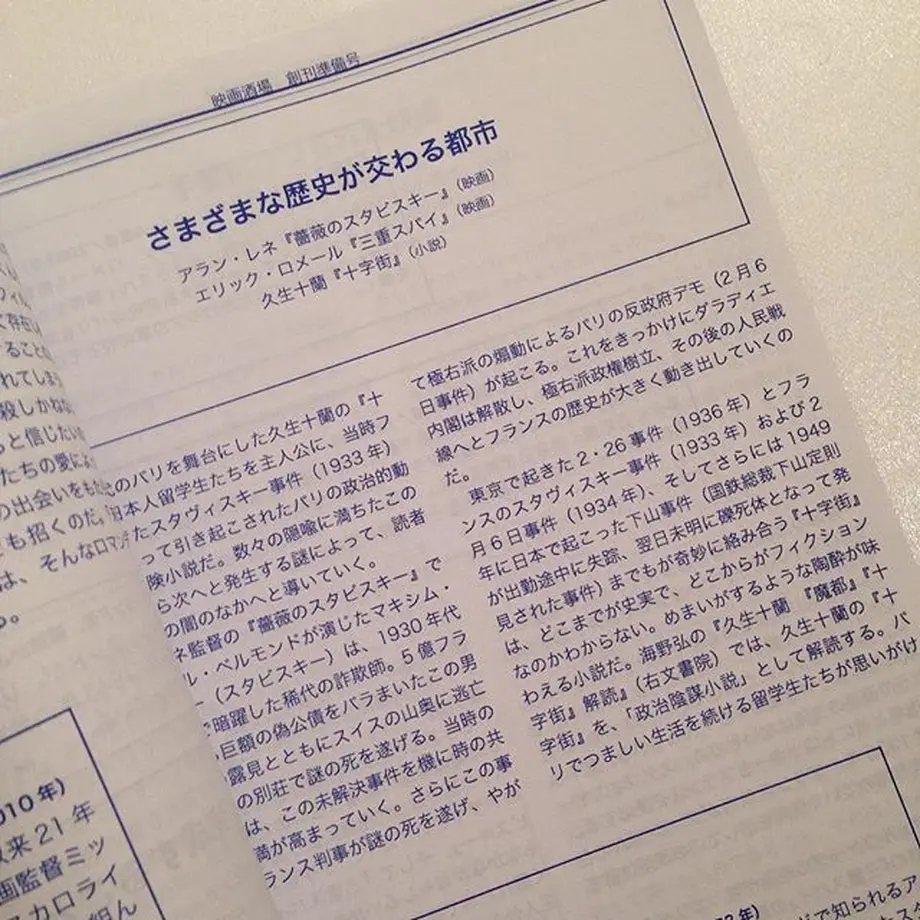 映画酒場 創刊準備号
さまざまな歴史が交わる都市
アラン・レネ『薔薇のスタビスキー』(映画)
エリック・ロメール『三重スパイ』(映画)
久生十蘭『十字街』(小説)
て存在し
ることの
れてしま
殺しかねな
っと信じたい
たちの愛によ
の出会いをもた
も招くのだ。
は、そんなロマン
る。
010年)
以来21年
画監督ミッ
スカロライ
組ん
のパリを舞台にした久生十蘭の『十
日本人留学生たちを主人公に、当時フ
たスタヴィスキー事件(1933年)
って引き起こされたパリの政治的動
険小説だ。数々の隠喩に満ちたこの
ら次へと発生する謎によって、読者
の闇のなかへと導いていく。
ネ監督の『薔薇のスタビスキー』で
ル・ベルモンドが演じたマキシム・
ー(スタビスキー)は、1930年代
暗躍した稀代の詐欺師。5億フラ
巨額の偽公債をバラまいたこの男
露見とともにスイスの山奥に逃亡
の別荘で謎の死を遂げる。当時の
は、この未解決事件を機に時の共
満が高まっていく。さらにこの事
ランス判事が謎の死を遂げ、やが
て極右派の煽動によるパリの反政府デモ(2月6
日事件)が起こる。これをきっかけにダラディエ
内閣は解散し、極右派政権樹立、その後の人民戦
線へとフランスの歴史が大きく動き出していくの
だ。
東京で起きた2・26事件(1936年)とフラ
ンスのスタヴィスキー事件(1933年)および2
月6日事件(1934年)、そしてさらには1949
年に日本で起こった下山事件(国鉄総裁下山定則
が出勤途中に失踪、翌日未明に礫死体となって発
見された事件)までもが奇妙に絡み合う『十字街』
は、どこまでが史実で、どこからがフィクション
なのかわからない。めまいがするような陶酔が味
わえる小説だ。海野弘の『久生十蘭 『魔都』『十
字街』解読』(右文書院)では、久生十蘭の『十
字街』を、「政治陰謀小説」として解読する。パ
リでつましい生活を続ける留学生たちが思いがけ
年)
ドで知られるア